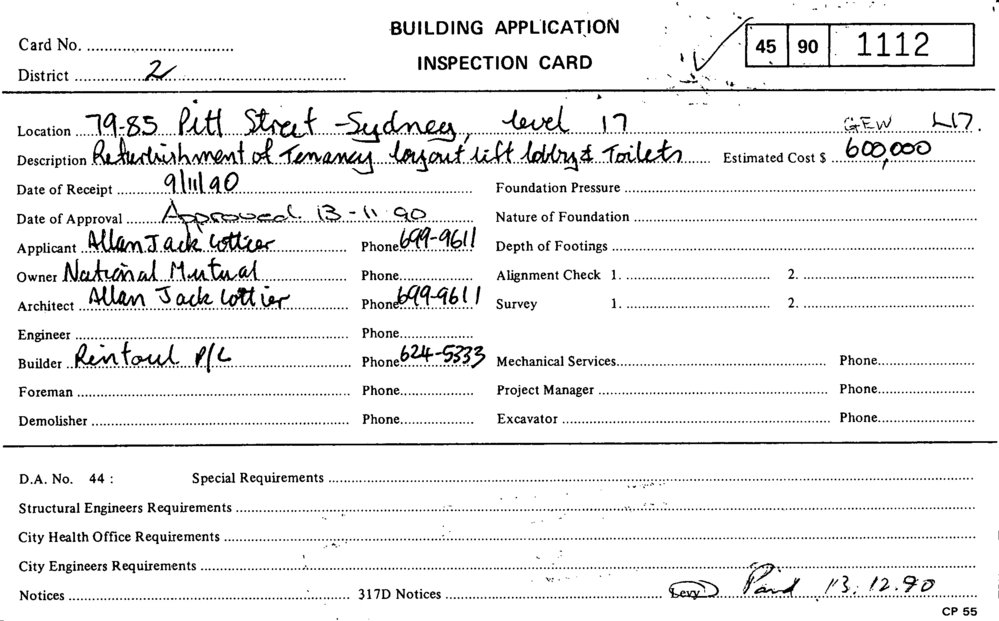 BUILDING APPLICATION
INSPECTION CARD
Card No. ..................
District 2
45 90 1112
Location 79-85 Pitt Street - Sydney, level 17 GEW L17.
Description Refurbishment of Tenancy layout lift lobby & Toilets Estimated Cost $ 600,000
Date of Receipt 9/11/90 Foundation Pressure
Date of Approval Approved 13-11-90 Nature of Foundation
Applicant Allan Jack Cottier Phone 699-9611 Depth of Footings
Owner National Mutual Phone Alignment Check 1. 2.
Architect Allan Jack Cottier Phone 699-9611 Survey 1. 2.
Engineer Phone
Builder Reintoul P/L Phone 624-5333 Mechanical Services Phone
Foreman Phone Project Manager Phone
Demolisher Phone Excavator Phone
D.A. No. 44 : Special Requirements
Structural Engineers Requirements
City Health Office Requirements
City Engineers Requirements
Notices 317D Notices Levy Paid 13.12.90
CP 55